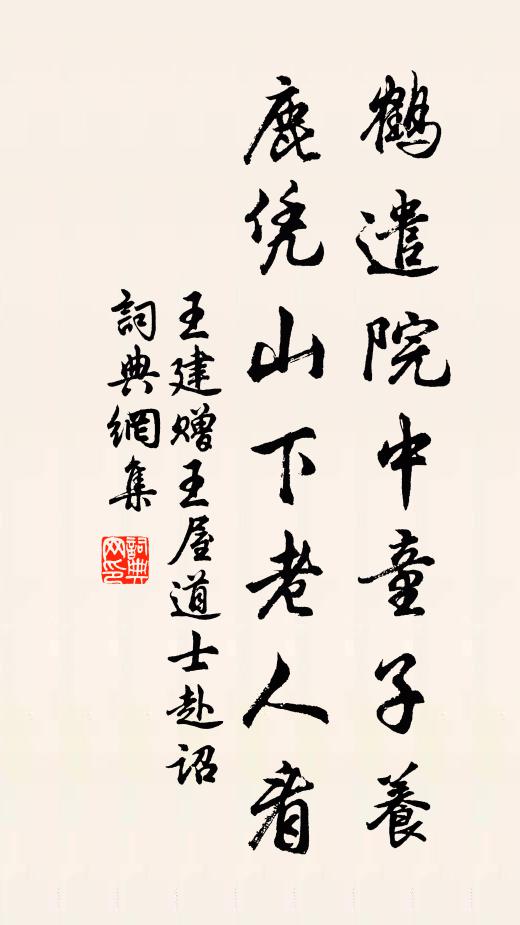 鶴遣院中童子養
鹿凭山下老人看
王建赠王屋道士赴诏
詞典網集
詞典网印